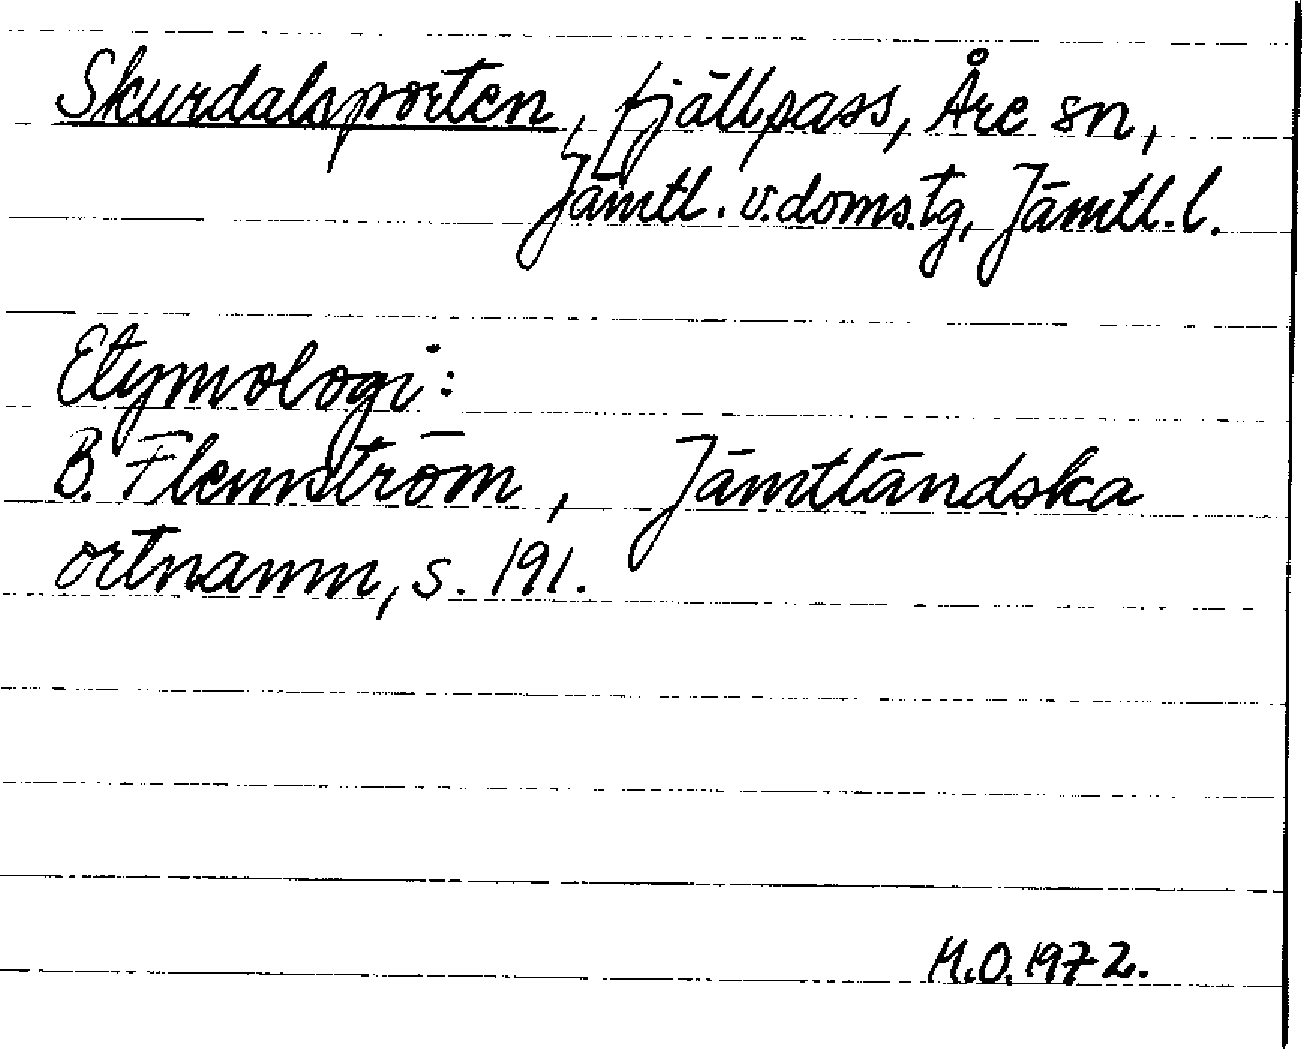 Skurdalsporten, fjällpass, Åre sn,
Jämtl. v. doms.tg, Jämtl. l.
Etymologi:
B. Flemström, Jämtländska
ortnamn, s. 191.
M.O. 1972.